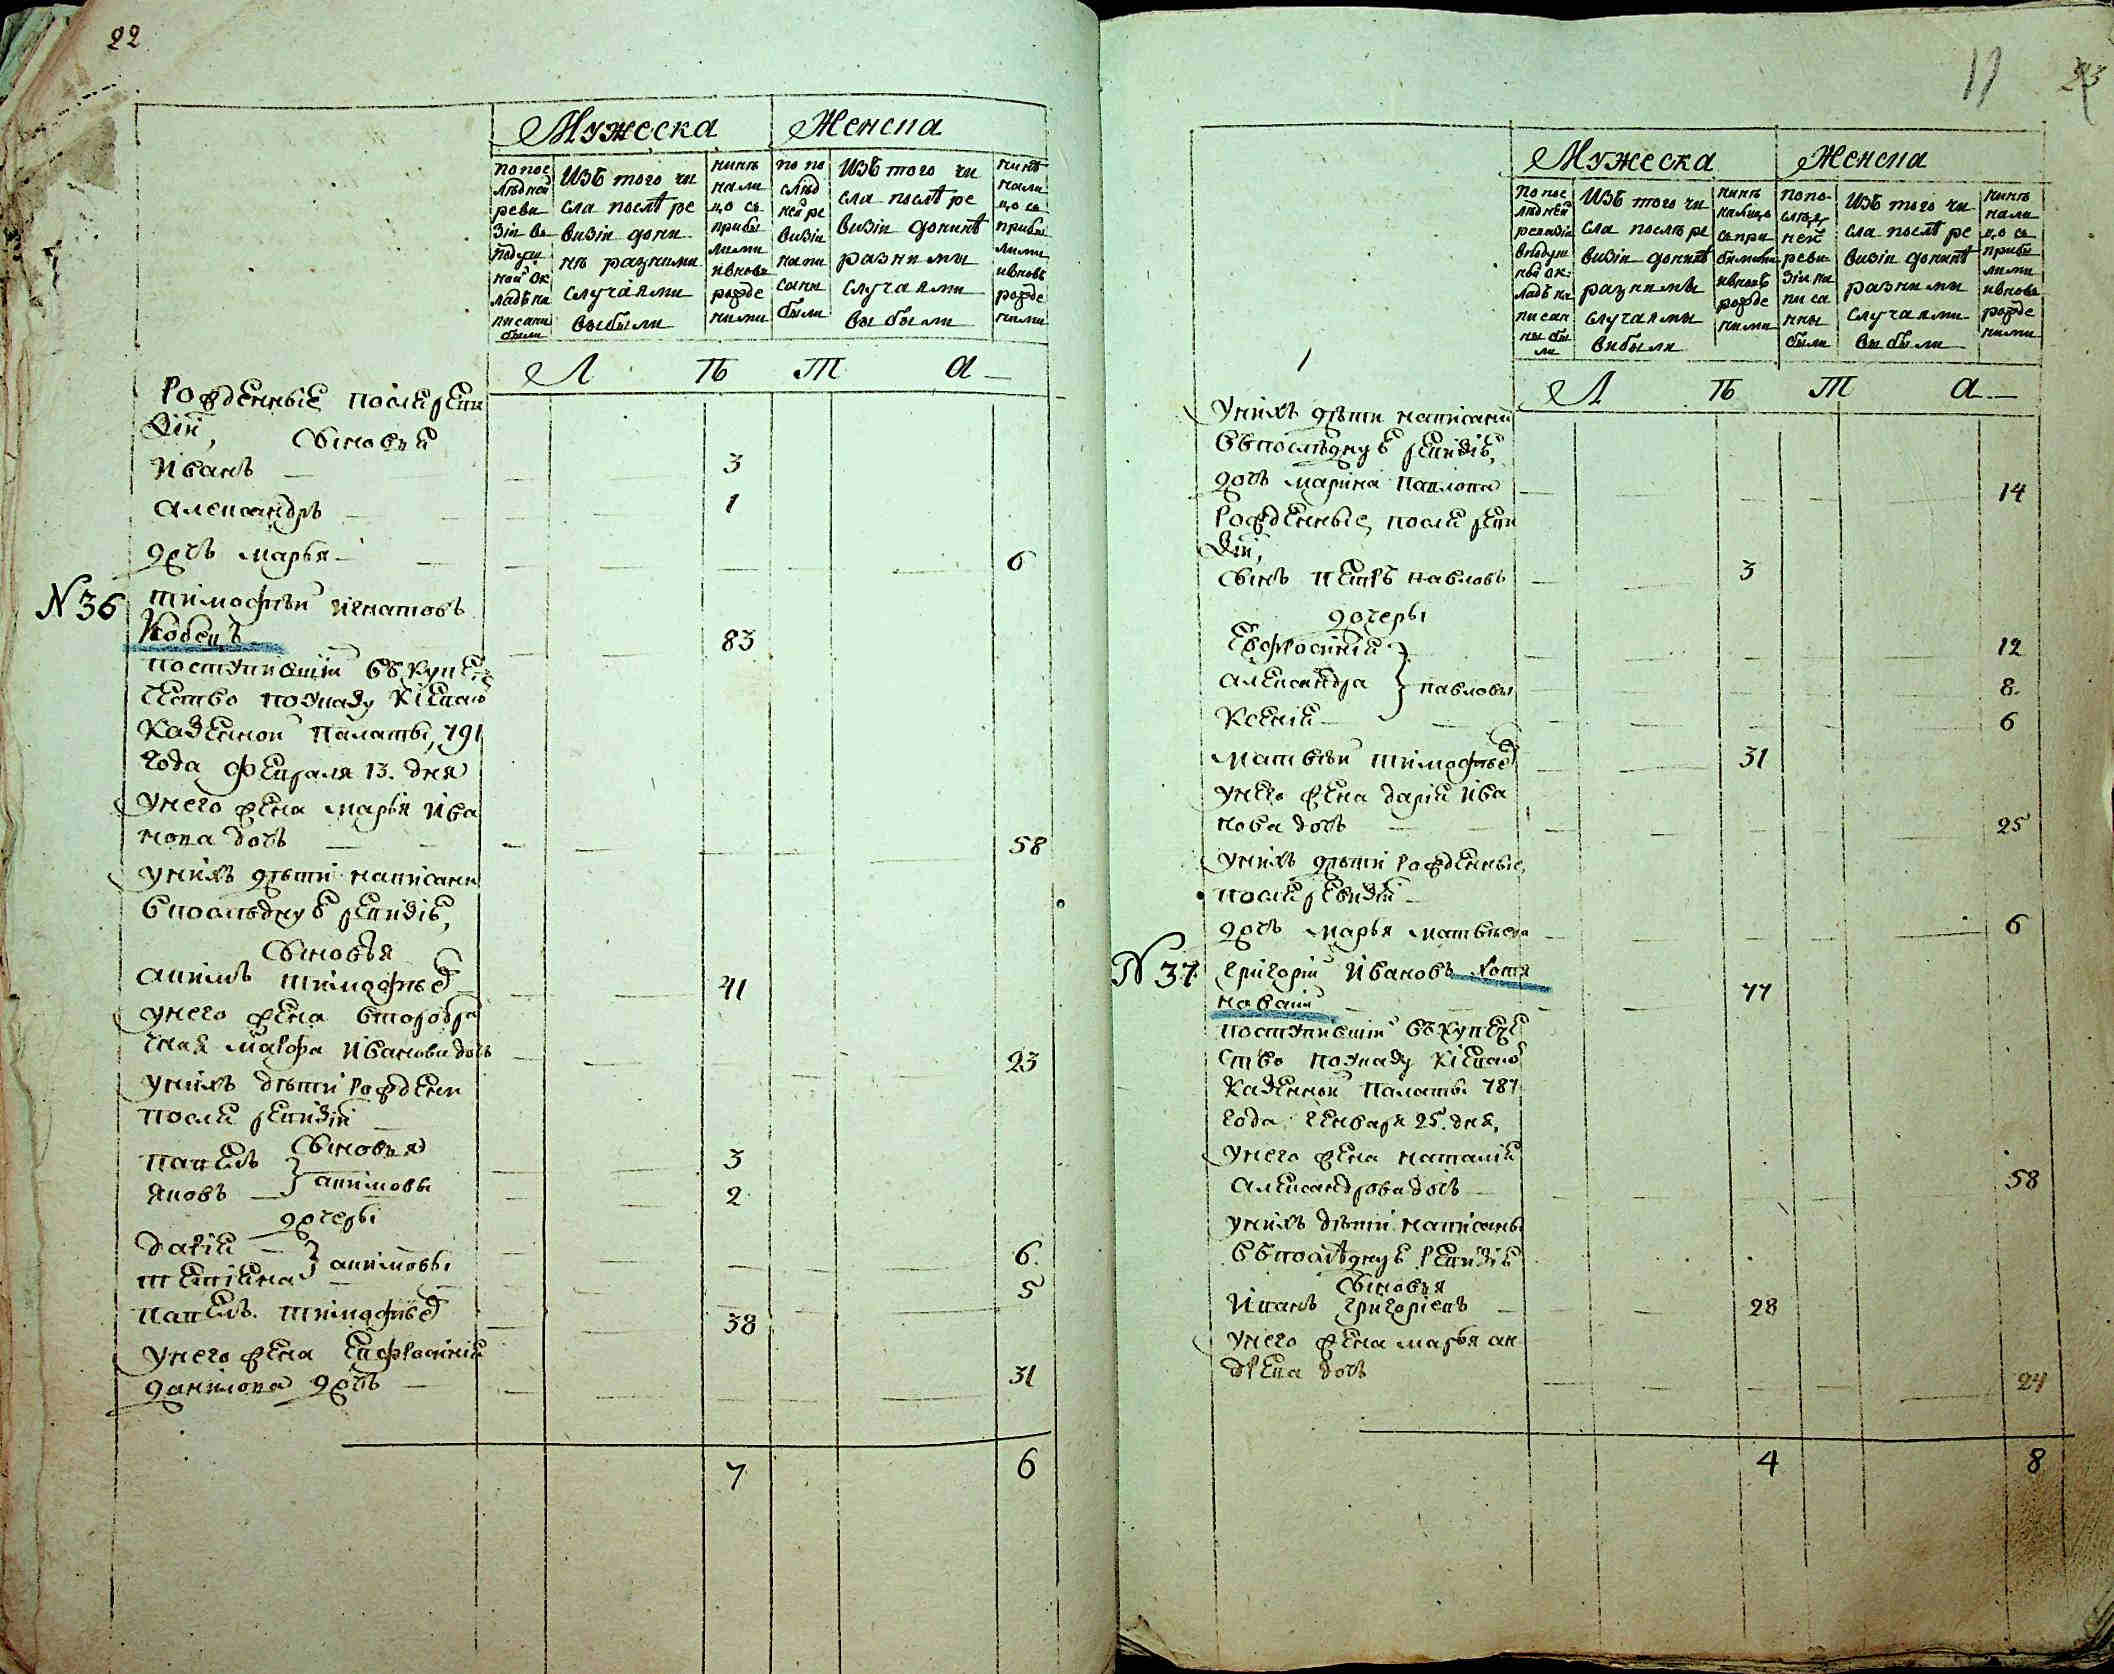 22
Мужеска
Женска
по пос
лѣдней
реви
зіи въ
подуш
ной ок
ладъ на
писани
были
Изъ того чи
сла послѣ ре
визіи до ни
нѣ разними
случаями
выбыли
нинѣ
нали
цо съ
прибы
лими
ивновь
рожде
ними
по по
слѣд
ней ре
визіи
напи
сани
были
Изъ того чи
сла послѣ ре
визіи донинѣ
разними
случаями
вы были
нинѣ
нали
цо съ
прибы
лими
ивновь
рожде
ними
Л ѣ т а
Рожденные после реви
зіи, Сыновья
Иванъ 3
Александръ 1
дочь Марья 6
N 36 Тимофѣй Игнатовъ
Кобецъ 83
поступившій въ купе
чество по указу Кіевской
Казенной Палаты, 791
года февраля 13. дня
у него жена Марья Ива
нова дочь 58
у нихъ дѣти написани
в последную ревизію,
Сыновья
Акимъ Тимофѣев 41
у него жена второбра
чная Марфа Иванова дочь 23
у нихъ дѣти рожденн
после ревизіи
Сыновья
Павелъ 3
Яковъ } Акимовы 2
дочеры
Дарія 6
Тетіена } Акимовы 5
Павелъ Тимофѣев 38
у него жена Евфросинія
Данилова дочь 31
7 6
17 23
Мужеска
Женска
по пос
лѣдней
ревизіи
вподуш
ной ок
ладъ на
писан
ны бы
ли
Изъ того чи
сла послѣ ре
визіи донинѣ
разними
случаями
вибыли
нинѣ
налицо
съ при
былими
ивновь
рожде
ними
по по
слѣд
ней
реви
зіи на
писа
нны
были
Изъ того чи
сла послѣ ре
визіи донинѣ
разними
случаями
вы были
нинѣ
нали
цо съ
прибы
лими
ивновь
рожде
ними
Л ѣ т а
У нихъ дѣти написани
въ последную ревизію,
дочь Марина Павлова 14
Рожденные после реви
зіи,
сынъ Петръ Павловъ 3
дочеры
Евфросинія 12
Александра } Павловы 8.
Ксенія 6
Матвѣй Тимофѣев 31
у него жена Дарія Ива
нова дочь 25
у нихъ дѣти рожденные
после ревизіи
дочь Марья Матвѣева 6
N 37 Григорій Ивановъ Хотя
новскій 77
поступившій въ купече
ство по указу Кіевской
Казенной Палаты 787
года генваря 25. дня,
у него жена Наталія
Александрова дочь 58
у нихъ дѣти написаны
въ последную ревизію
Сыновья
Иванъ Григоріевъ 28
у него жена Марья Ан
дреева дочь 24
4 8